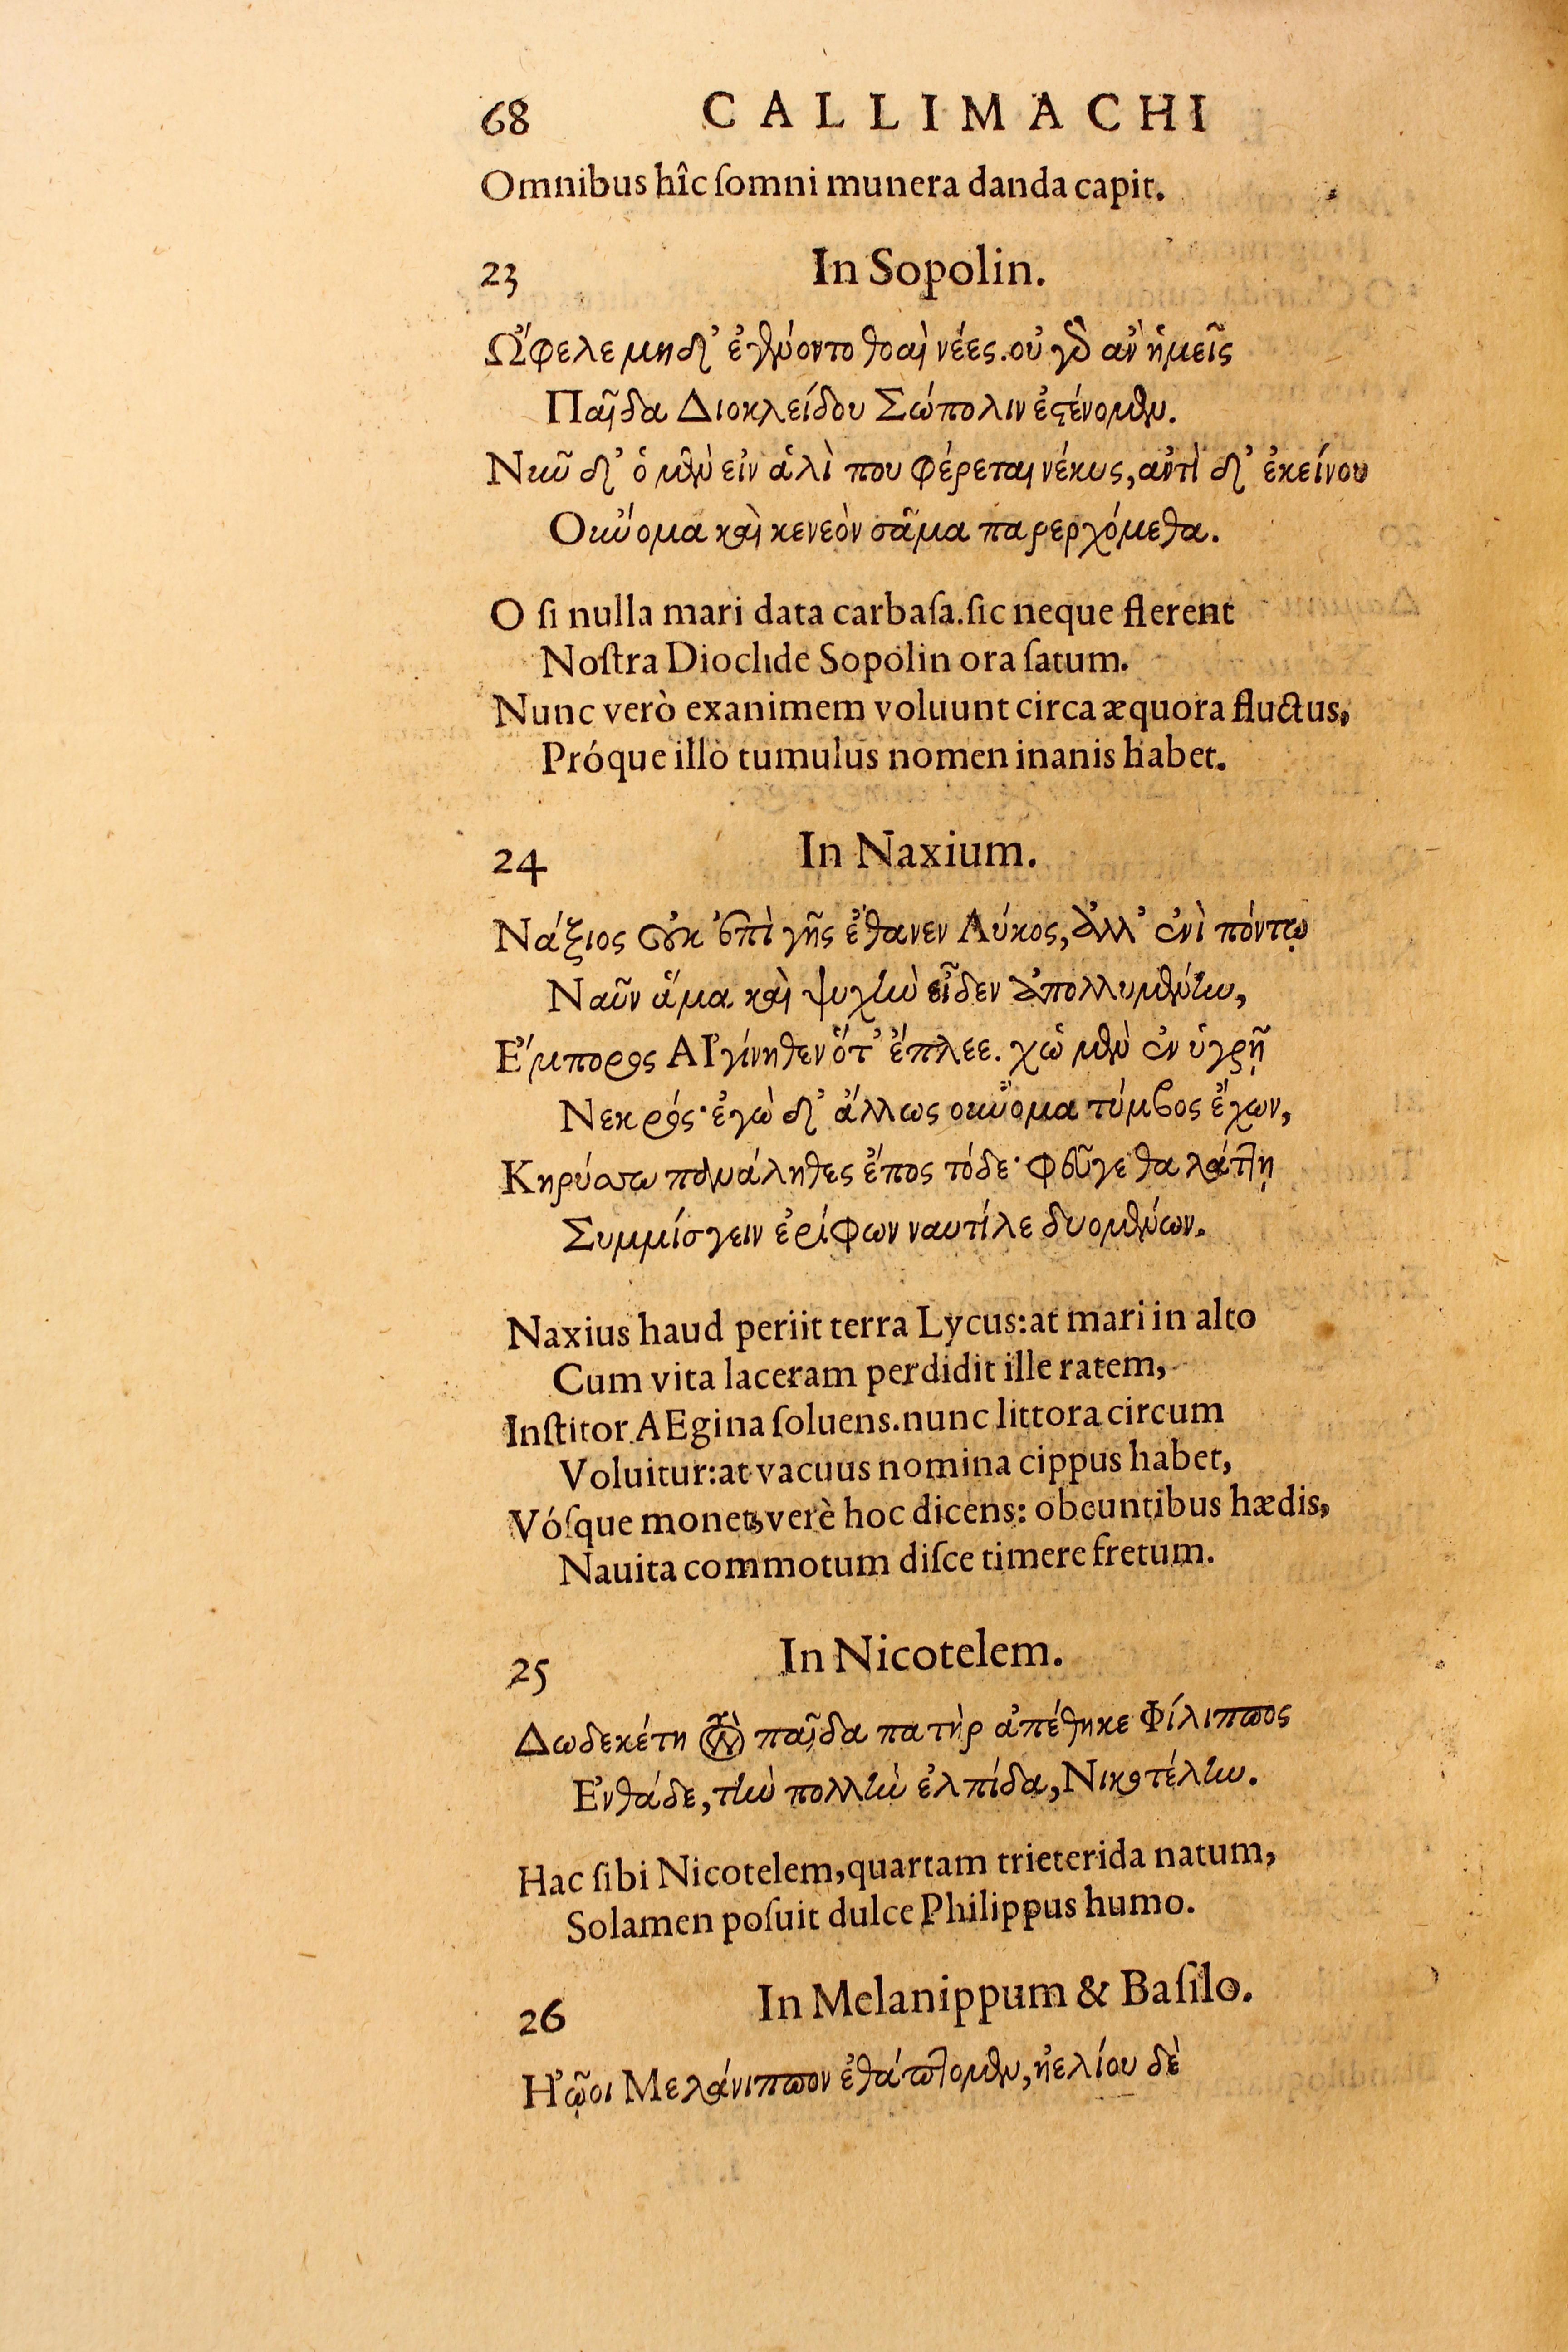 68 CALLIMACHI
Omnibus hîc ſomni munera danda capit.
23 In Sopolin.
Ὤφελε μηδ᾽ ἐγένοντο θοαὶ νέες. οὐ γὰρ ἂν ἡμεῖς
Παῖδα Διοκλείδου Σώπολιν ἐστένομεν.
Νῦν δ᾽ ὁ μὲν εἰν ἁλὶ που φέρεται νέκυς, ἀντὶ δ᾽ ἐκείνου
Οὔνομα καὶ κενεὸν σᾶμα παρερχόμεθα.
O ſi nulla mari data carbaſa. ſic neque flerent
Noſtra Dioclide Sopolin ora ſatum.
Nunc verò exanimem voluunt circa æquora fluctus,
Próque illo tumulus nomen inanis habet.
24 In Naxium.
Νάξιος οὐκ ἐπὶ γῆς ἔθανεν Λύκος, ἀλλ᾽ ἐνὶ πόντῳ
Ναῦν ἅμα καὶ ψυχὴν εἶδεν ἀπολλυμένην,
Ἔμπορος ΑἸγίνηθεν ὅτ᾽ ἔπλεε. χὠ μὲν ἐν ὑγρῇ
Νεκρός· ἐγὼ δ᾽ ἄλλως οὔνομα τύμβος ἔχων,
Κηρύσσω παναληθες ἔπος τόδε· φεῦγε θαλάττῃ
Συμμίσγειν ἐρίφων ναυτίλε δυομένων.
Naxius haud periit terra Lycus: at mari in alto
Cum vita laceram perdidit ille ratem,
Inſtitor AEgina ſoluens. nunc littora circum
Voluitur: at vacuus nomina cippus habet,
Vóſque monet, verè hoc dicens: obeuntibus hædis,
Nauita commotum diſce timere fretum.
25 In Nicotelem.
Δωδεκέτη τὸν παῖδα πατὴρ ἀπέθηκε Φίλιππος
Ἐνθάδε, τὴν πολλὴν ἐλπίδα, Νικοτέλην.
Hac ſibi Nicotelem, quartam trieterida natum,
Solamen poſuit dulce Philippus humo.
26 In Melanippum & Baſilo.
Ἠῷοι Μελάνιππον ἐθάπτομεν, ἠελίου δὲ